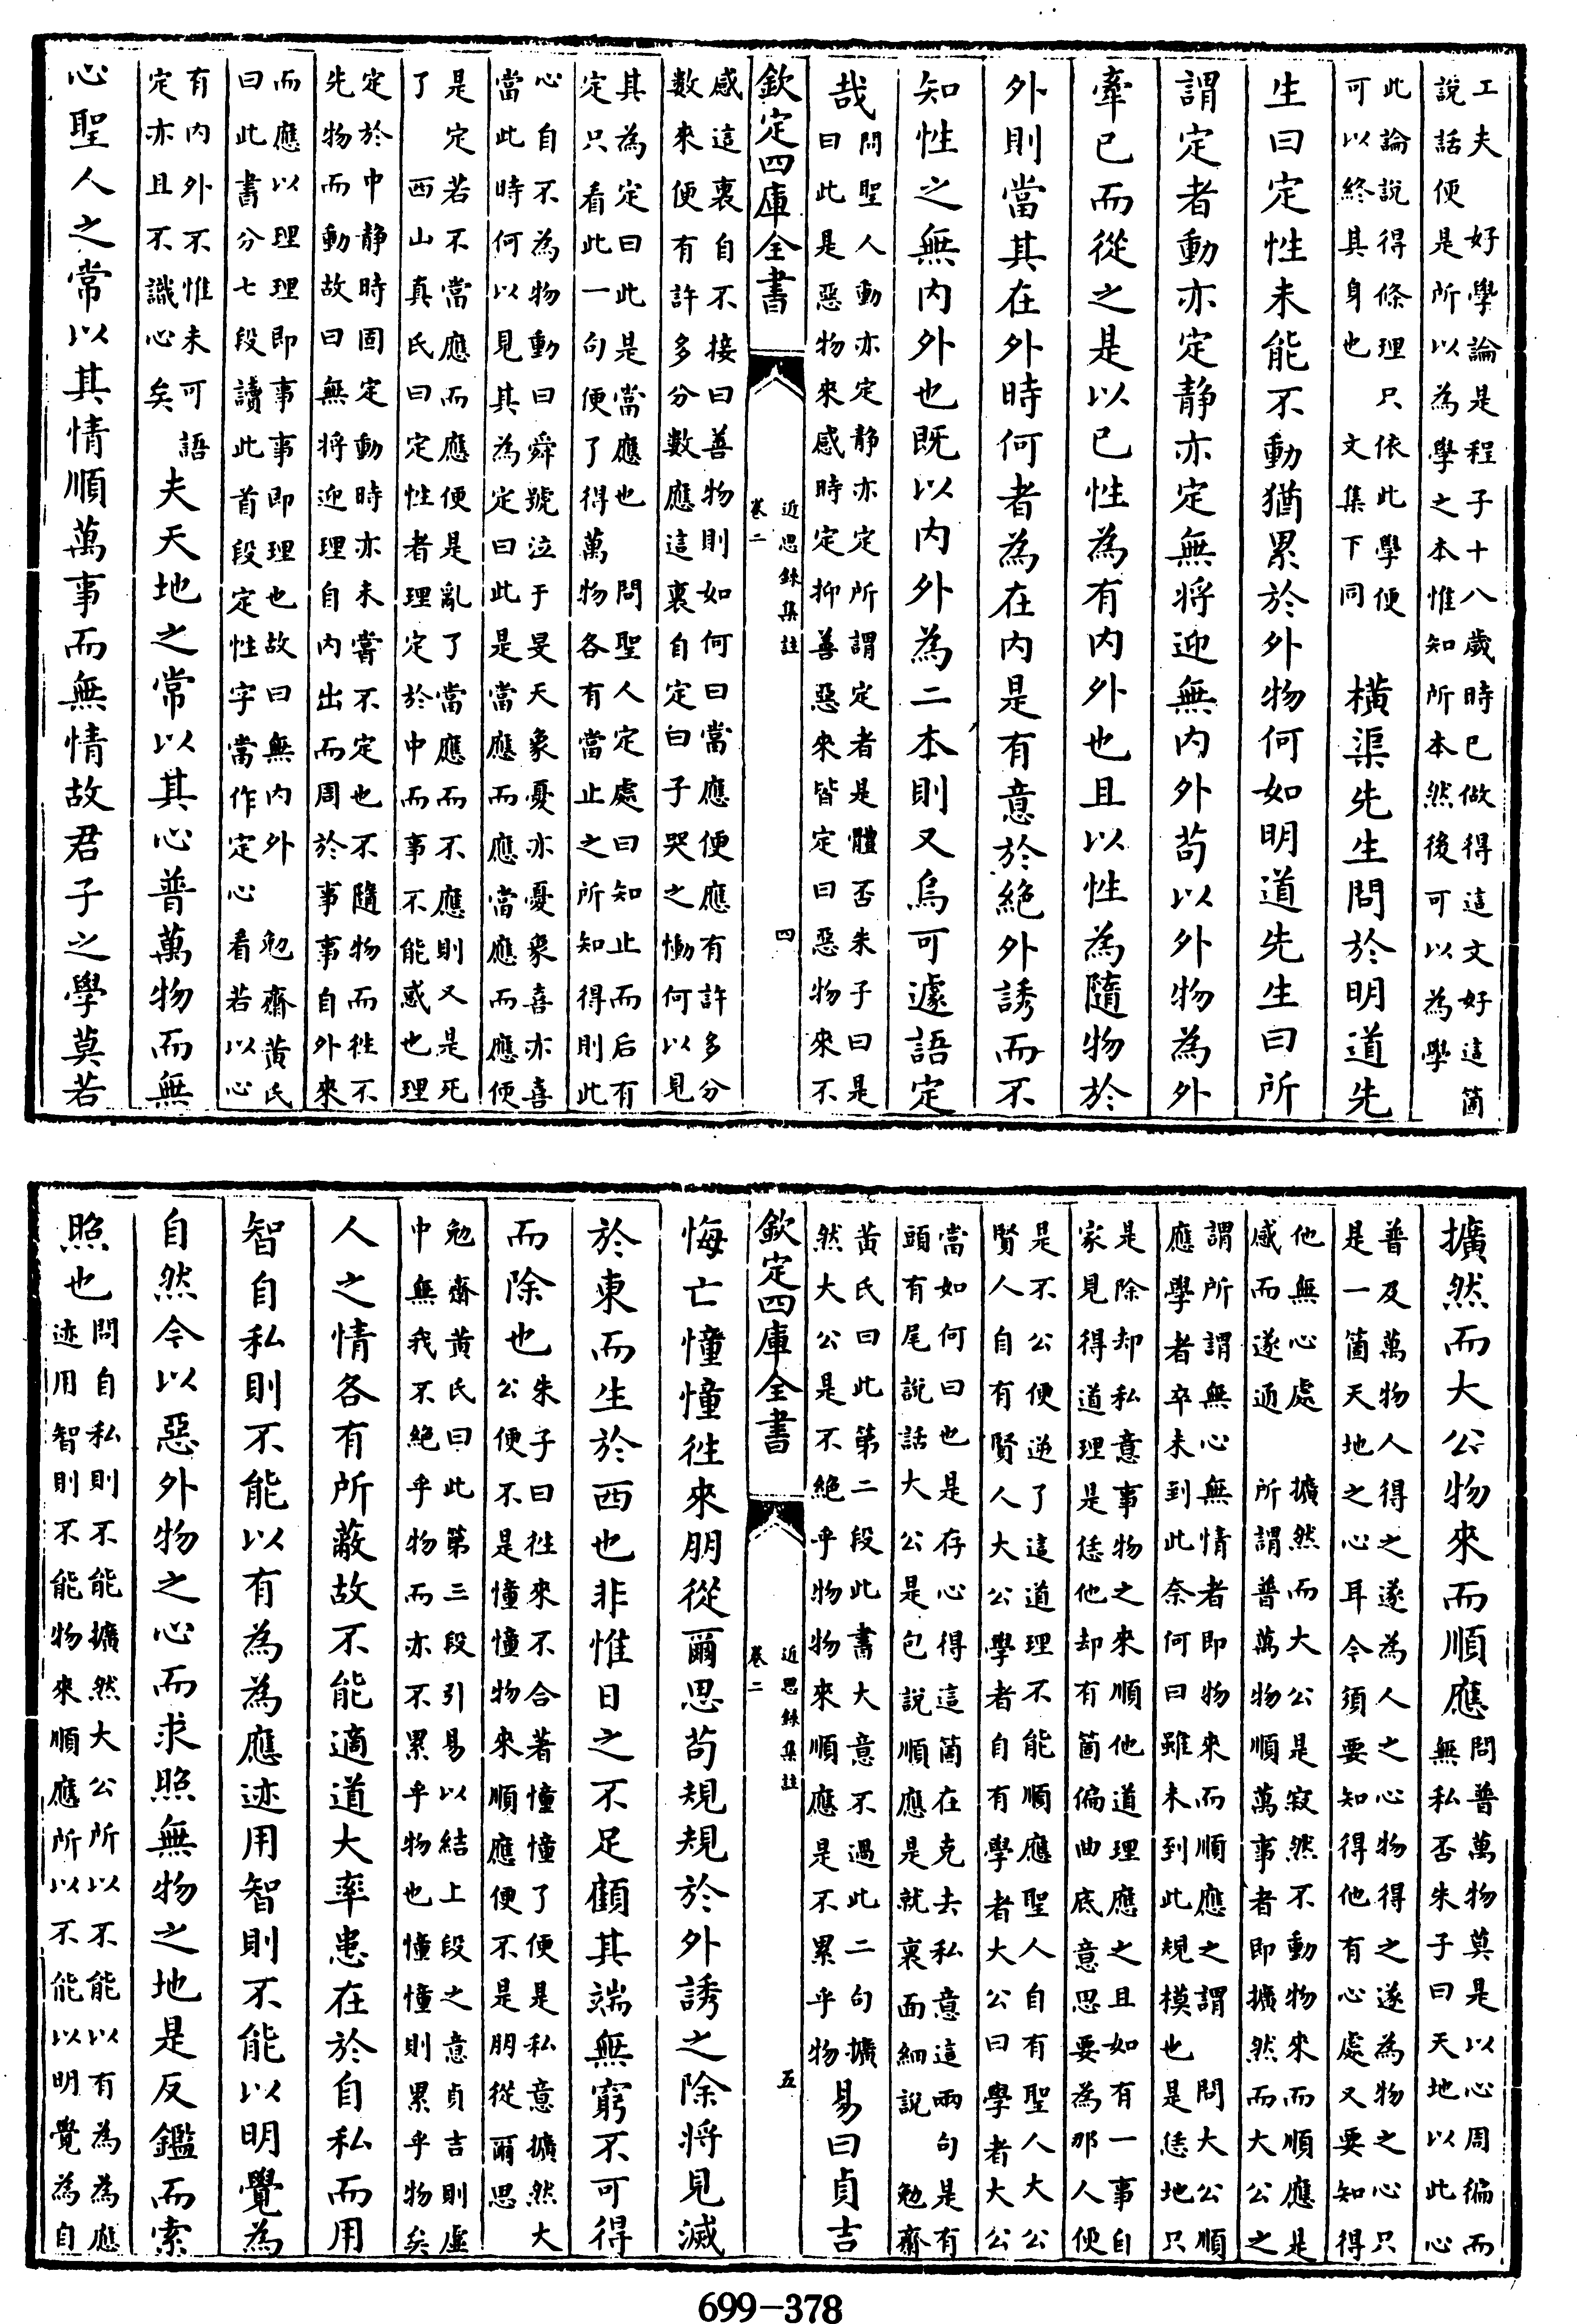 工夫　好學論是程子十八歲時已做得這文好這箇
說話便是所以為學之本惟知所本然後可以為學
此論說得條理只依此學便
可以終其身也　文集下同
橫渠先生問於明道先
生曰定性未能不動猶累於外物何如明道先生曰所
謂定者動亦定静亦定無將迎無内外苟以外物為外
牽已而從之是以已性為有内外也且以性為隨物於
外則當其在外時何者為在内是有意於絶外誘而不
知性之無内外也既以内外為二本則又烏可遽語定
哉
問聖人動亦定静亦定所謂定者是體否朱子曰是
曰此是惡物來感時定抑善惡來皆定曰惡物來不
欽定四庫全書
近思錄集註
卷二
四
感這裏自不接曰善物則如何曰當應便應有許多分
數來便有許多分數應這裏自定曰子哭之慟何以見
其為定曰此是當應也　問聖人定處曰知止而后有
定只看此一句便了得萬物各有當止之所知得則此
心自不為物動曰舜號泣于旻天象憂亦憂象喜亦喜
當此時何以見其為定曰此是當應而應當應而應便
是定若不當應而應便是亂了當應而不應則又是死
了　西山真氏曰定性者理定於中而事不能惑也理
定於中静時固定動時亦未嘗不定也不隨物而徃不
先物而動故曰無將迎理自内出而周於事事自外來
而應以理理即事事即理也故曰無内外　勉齋黄氏
曰此書分七段讀此首段定性字當作定心看若以心
有内外不惟未可語
定亦且不識心矣
夫天地之常以其心普萬物而無
心聖人之常以其情順萬事而無情故君子之學莫若
擴然而大公物來而順應
問普萬物莫是以心周徧而
無私否朱子曰天地以此心
普及萬物人得之遂為人之心物得之遂為物之心只
是一箇天地之心耳今須要知得他有心處又要知得
他無心處　擴然而大公是寂然不動物來而順應是
感而遂通　所謂普萬物順萬事者即擴然而大公之
謂所謂無心無情者即物來而順應之謂　問大公順
應學者卒未到此奈何曰雖未到此規模也是恁地只
是除却私意事物之來順他道理應之且如有一事自
家見得道理是恁他却有箇偏曲底意思要為那人便
是不公便逆了這道理不能順應聖人自有聖人大公
賢人自有賢人大公學者自有學者大公曰學者大公
當如何曰也是存心得這箇在克去私意這兩句是有
頭有尾說話大公是包說順應是就裏面細說　勉齋
黄氏曰此第二段此書大意不過此二句擴
然大公是不絶乎物物來順應是不累乎物
易曰貞吉
欽定四庫全書
近思錄集註
卷二
五
悔亡憧憧徃來朋從爾思苟規規於外誘之除將見滅
於東而生於西也非惟日之不足顧其端無窮不可得
而除也
朱子曰徃來不合著憧憧了便是私意擴然大
公便不是憧憧物來順應便不是朋從爾思
勉齋黄氏曰此第三段引易以結上段之意貞吉則虛
中無我不絶乎物而亦不累乎物也憧憧則累乎物矣
人之情各有所蔽故不能適道大率患在於自私而用
智自私則不能以有為為應迹用智則不能以明覺為
自然今以惡外物之心而求照無物之地是反鑑而索
照也
問自私則不能擴然大公所以不能以有為為應
迹用智則不能物來順應所以不能以明覺為自
699-378